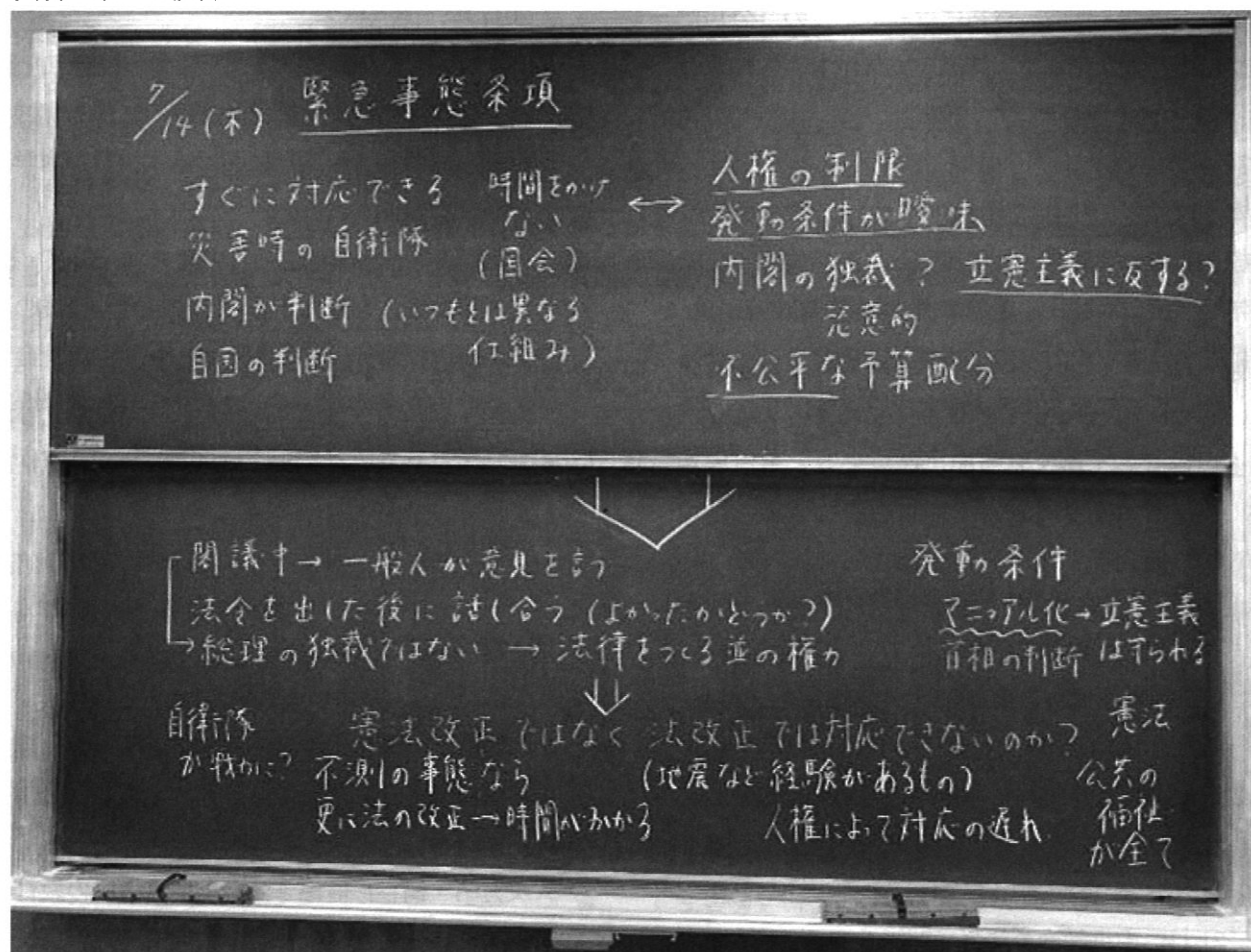 7/14(木) 緊急事態条項
すぐに対応できる
時間をかけ
ない
(国会)
災害時の自衛隊
内閣が判断 (いつもとは異なる
仕組み)
自国の判断
↔
人権の制限
発動条件が曖昧
内閣の独裁? 立憲主義に反する?
恣意的
不公平な予算配分
閣議中→一般人が意見を言う
法令を出した後に話し合う (よかったかどうか?)
→総理の独裁ではない → 法律をつくる並の権力
発動条件
マニュアル化→立憲主義
首相の判断 は守られる
自衛隊
が戦力に?
憲法改正ではなく 法改正では対応できないのか?
不測の事態なら
(地震など経験があるもの)
更に法の改正→時間がかかる
人権によって対応の遅れ
憲法
公共の
福祉
が全て